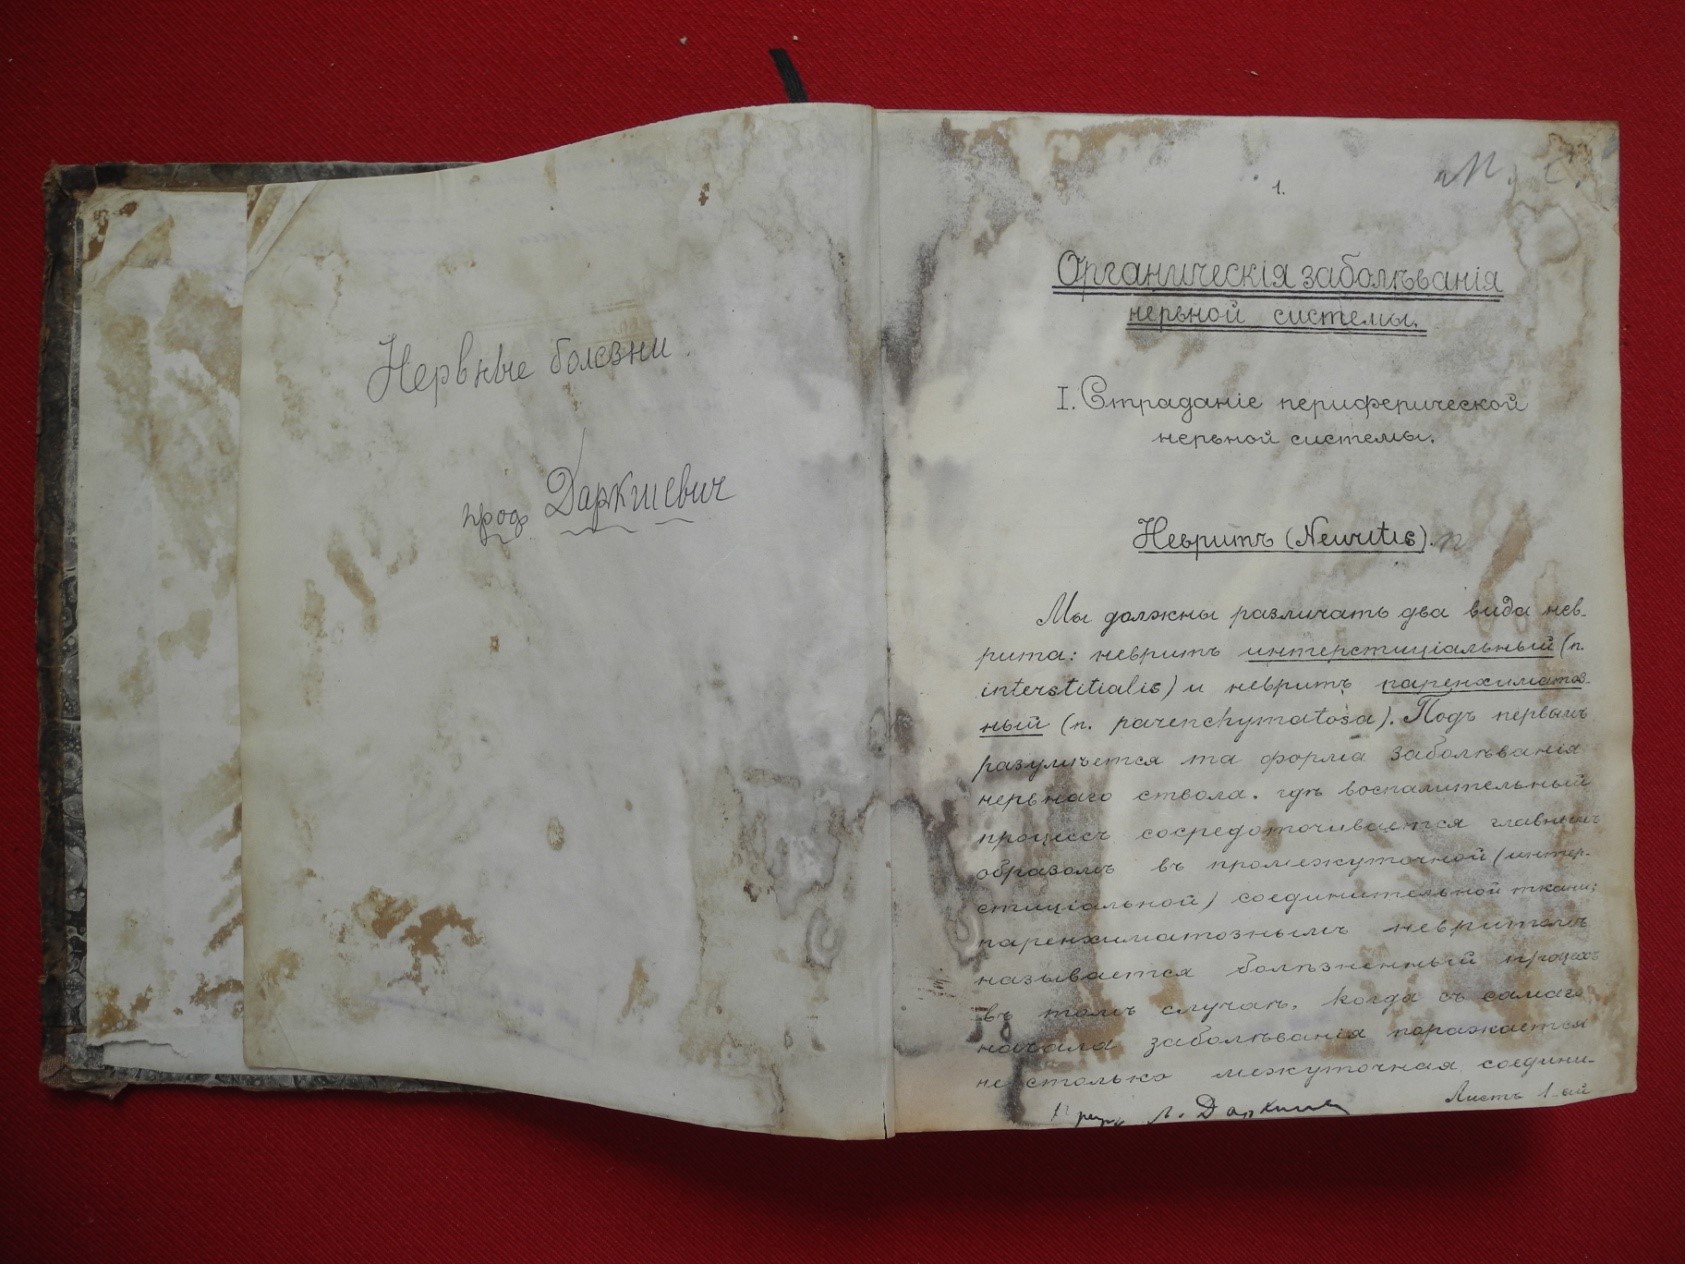 Нервные болезни.
проф. Даркшевич
1.
Органическія заболѣванія
нервной системы.
I. Страданіе периферической
нервной системы.
Невритъ (Neuritis).
Мы должны различать два вида нев-
рита: невритъ интерстиціальный (n.
interstitialis) и невритъ паренхиматоз-
ный (n. parenchymatosa). Подъ первымъ
разумѣется та форма заболѣванія
нервнаго ствола, гдѣ воспалительный
процессъ сосредоточивается главнымъ
образомъ въ промежуточной (интер-
стиціальной) соединительной ткани;
паренхиматознымъ невритомъ
называется болѣзненный процессъ
въ томъ случаѣ, когда съ самаго
начала заболѣванія поражается
не столько межуточная соедини-
Л. Даркшев
Листъ 1-ый